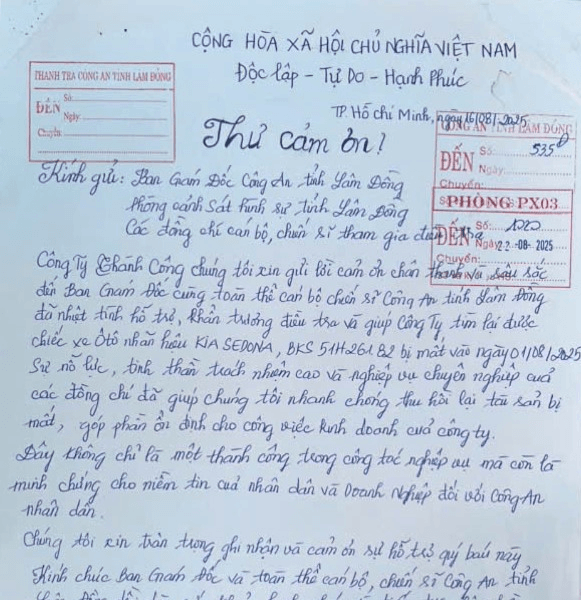 CỘNG HÒA XÃ HỘI CHỦ NGHĨA VIỆT NAM
Độc lập - Tự Do - Hạnh Phúc
THANH TRA CÔNG AN TỈNH LÂM ĐỒNG
ĐẾN Số:
Ngày
Chuyển:
TP. Hồ Chí Minh, ngày 16/08/2025
CÔNG AN TỈNH LÂM ĐỒNG
ĐẾN Số: 535
Ngày:
Chuyển:
PHÒNG PX03
ĐẾN Số:
Ngày 22-08-2025
Chuyển:
Thư cảm ơn!
Kính gửi: Ban Giám Đốc Công An tỉnh Lâm Đồng
Phòng cảnh sát hình sự tỉnh Lâm Đồng
Các đồng chí cán bộ, chiến sĩ tham gia điều tra
Công Ty Thành Công chúng tôi xin gửi lời cảm ơn chân thành và sâu sắc
đến Ban Giám Đốc cùng toàn thể cán bộ chiến sĩ Công An tỉnh Lâm Đồng
đã nhiệt tình hỗ trợ, khẩn trương điều tra và giúp Công Ty tìm lại được
chiếc xe Ôtô nhãn hiệu KIA SEDONA, BKS 51H261.82 bị mất vào ngày 01/08/2025
Sự nỗ lực, tinh thần trách nhiệm cao và nghiệp vụ chuyên nghiệp cuả
các đồng chí đã giúp chúng tôi nhanh chóng thu hồi lại tài sản bị
mất, góp phần ổn định cho công việc kinh doanh cuả công ty.
Đây không chỉ là một thành công trong công tác nghiệp vụ mà còn là
minh chứng cho niềm tin cuả nhân dân và Doanh Nghiệp đối với Công An
nhân dân.
Chúng tôi xin trân trọng ghi nhận và cảm ơn sự hỗ trợ quý báu này
Kính chúc Ban Giám Đốc và toàn thể cán bộ, chiến sĩ Công An tỉnh